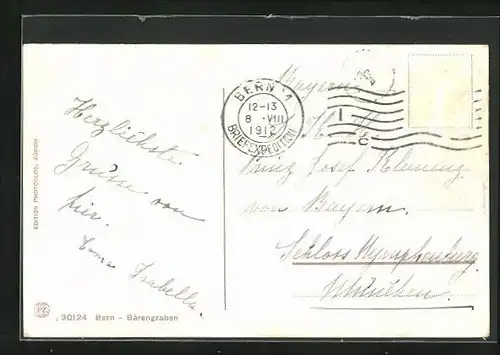 Bayern
BERN 1
12-13
8 VIII
1912
BRIEFEXPEDITION
Herzlichste
Grüsse von
hier.
Isabella.
Prinz Josef Klemens
von Bayern.
Schloss Nymphenburg
München.
EDITION PHOTOGLOB, ZÜRICH
PZ
30124 Bern - Bärengraben